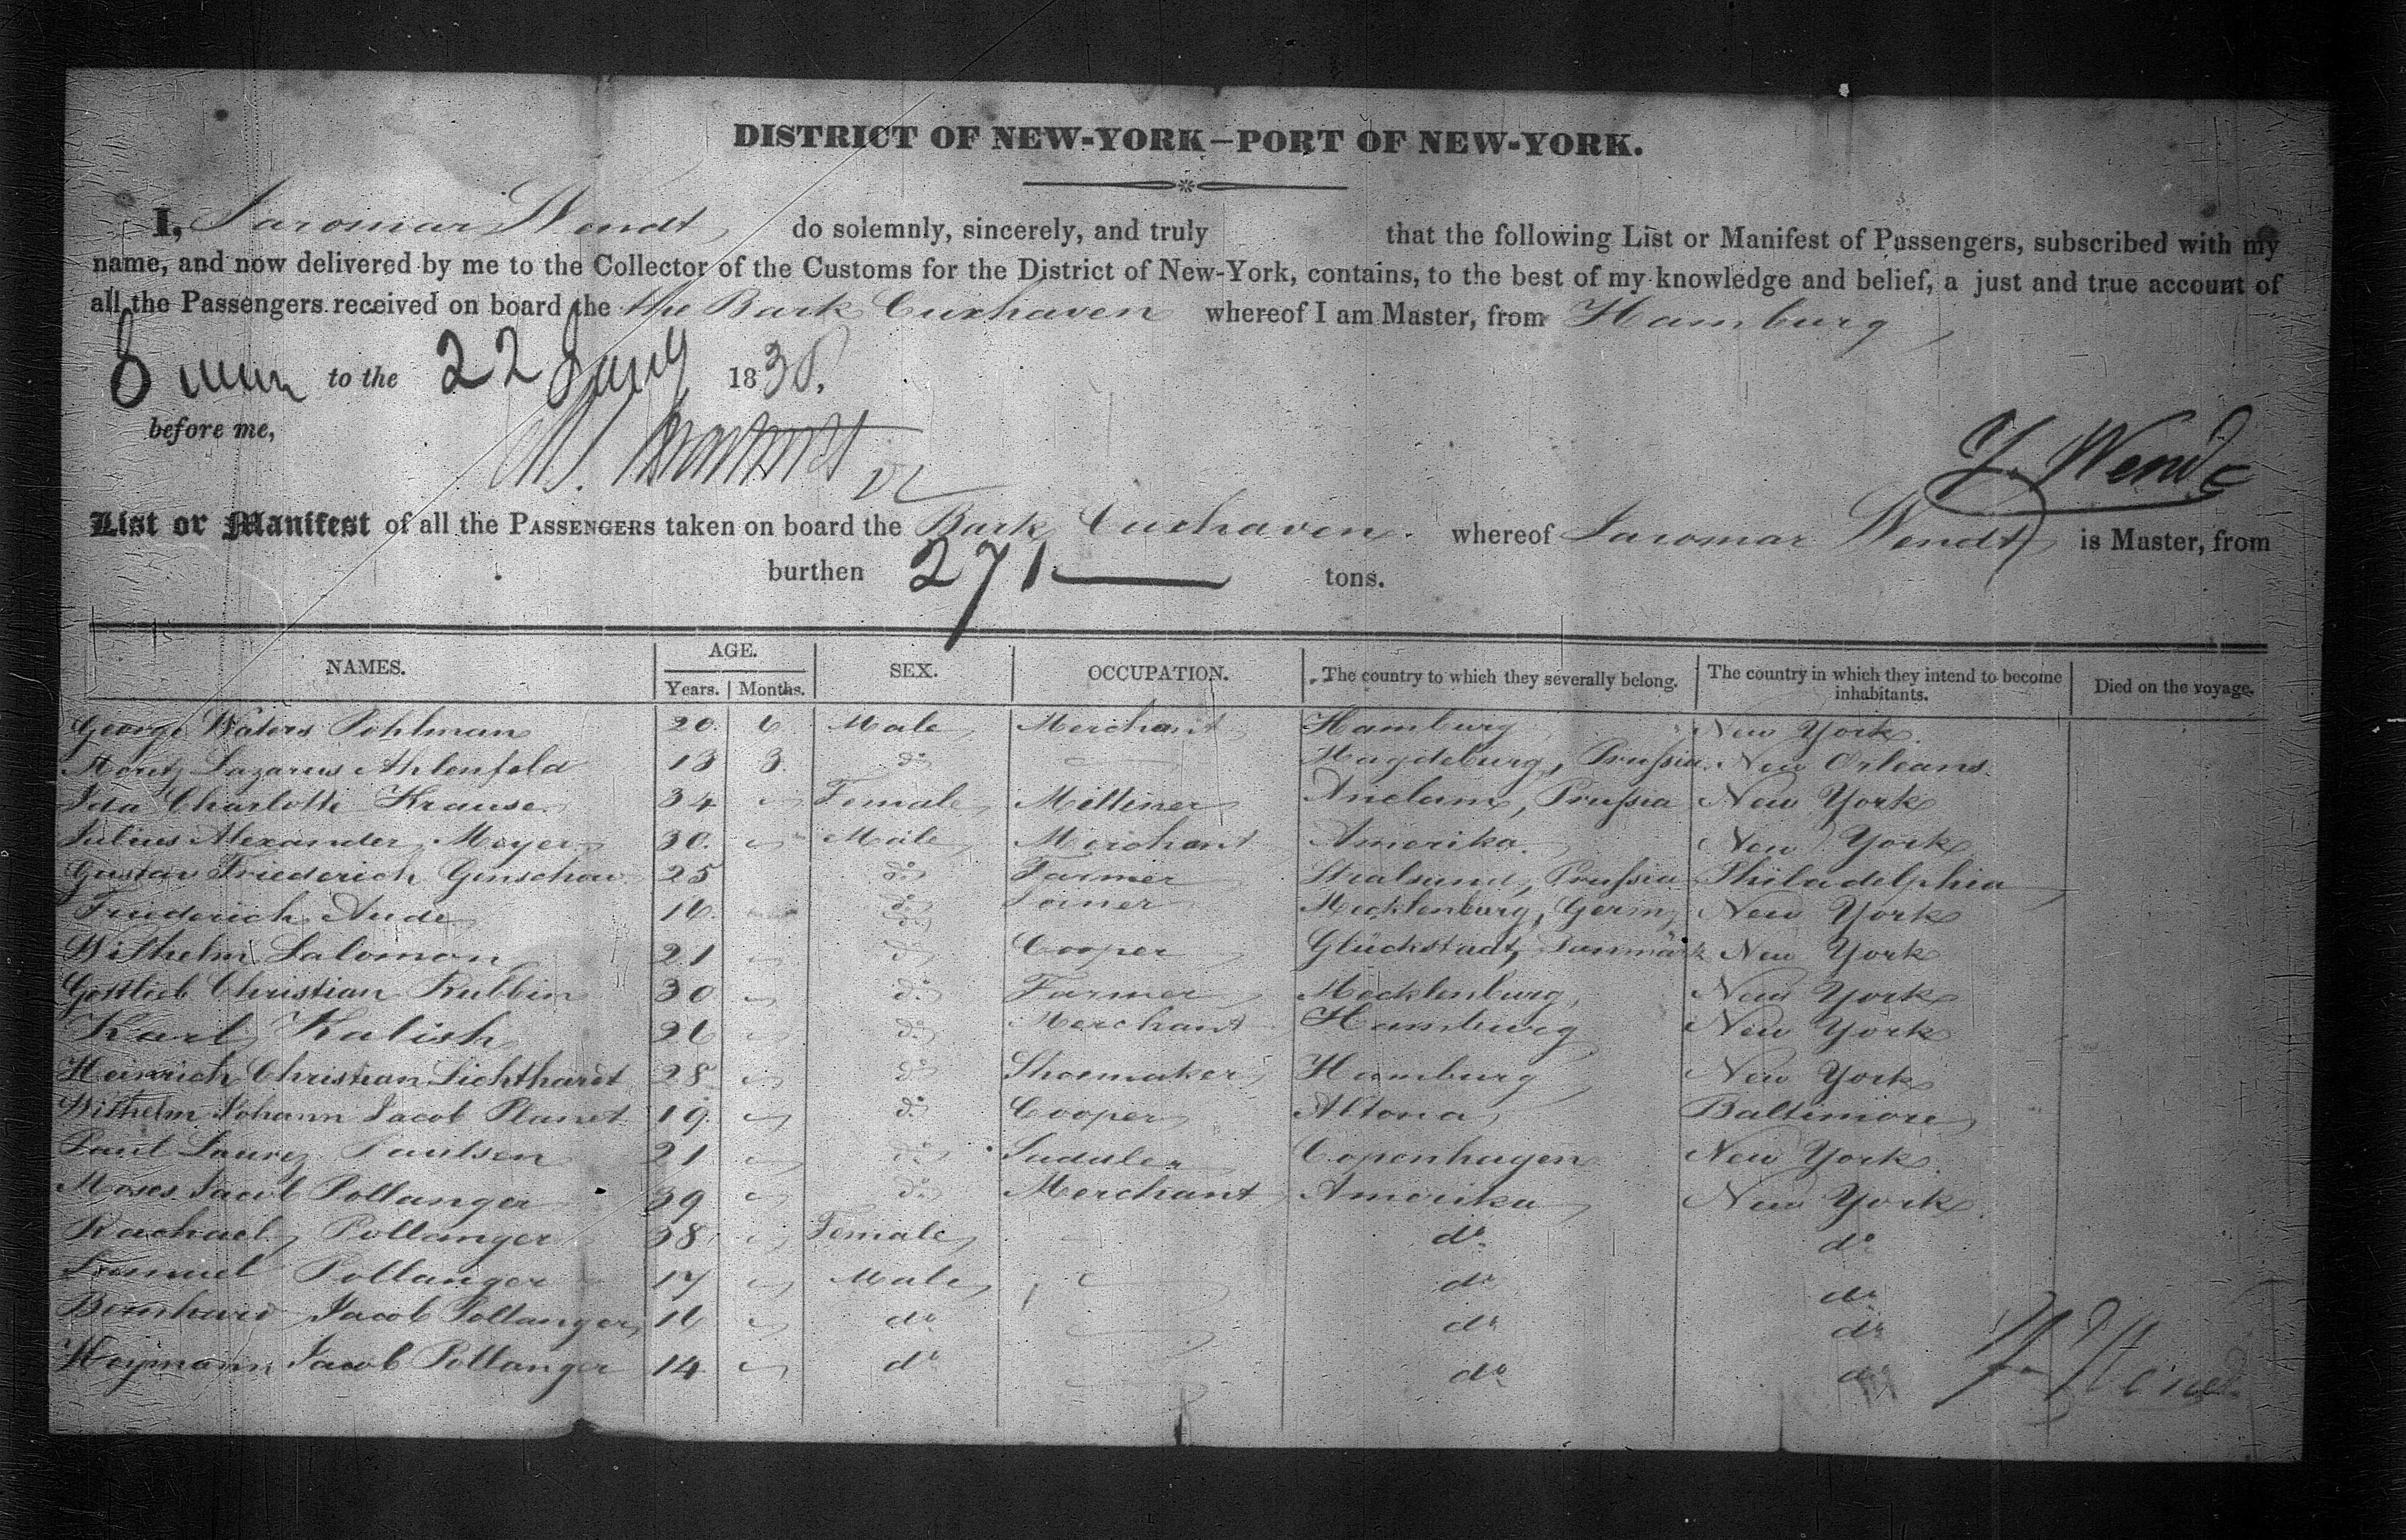 DISTRICT OF NEW-YORK—PORT OF NEW-YORK.
I, Jaromar Wendt do solemnly, sincerely, and truly that the following List or Manifest of Passengers, subscribed with my
name, and now delivered by me to the Collector of the Customs for the District of New-York, contains, to the best of my knowledge and belief, a just and true account of
all the Passengers received on board the the Bark Cuxhaven whereof I am Master, from Hamburg
to the 22 1838.
before me,
J. Wendt
List or Manifest of all the PASSENGERS taken on board the Bark Cuxhaven. whereof Jaromar Wendt is Master, from
burthen 271 tons.
NAMES. AGE. SEX. OCCUPATION. The country to which they severally belong. The country in which they intend to become inhabitants. Died on the voyage.
Years. Months.
George Waters Pohlman 20. 6 Male Merchant Hamburg New York.
Moritz Lazarus Ahlenfeld 13 3. do Magdeburg, Prussia. New Orleans.
Ida Charlotte Krause 34 Female Milliner Anclam, Prussia New York
Julius Alexander Meyer 30. Male Merchant Amerika. New York
Gustav Friederich Genschow 25 do Farmer Stralsund, Prussia Philadelphia
Friederich Aude 16. do Joiner Mecklenburg, Germ. New York
Wilhelm Salomon 21 do Cooper Glückstadt, Danmark New York
Gottlieb Christian Rubbin 30 do Farmer Mecklenburg, New York
Karl Kalish 26 do Merchant Hamburg New York
Heinrich Christian Lichthardt 28 do Shoemaker Hamburg New York
Wilhelm Johann Jacob Planet 19. do Cooper Altona Baltimore
Paul Paulsen 21 do Saddler Copenhagen New York.
Moses Jacob Pollanger 39 do Merchant Amerika New York.
Rachael Pollanger 38 Female do do
Samuel Pollanger 17 Male do do
Bernhard Jacob Pollanger, 16 do do do
Heymann Jacob Pollanger 14 do do do